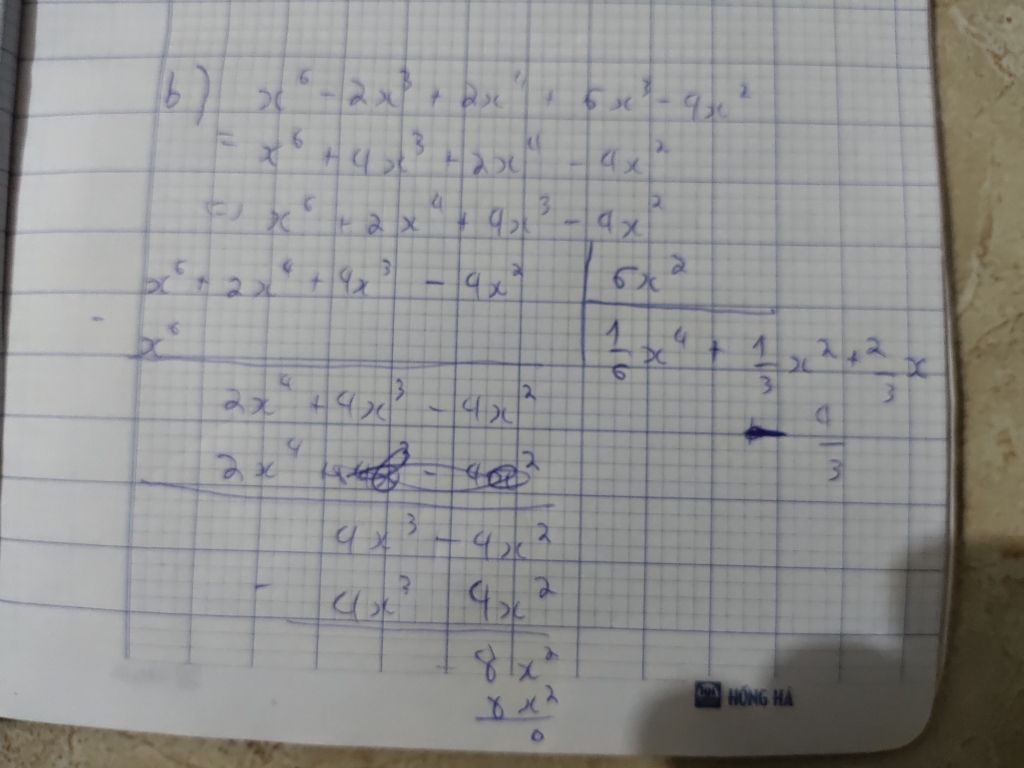 b) x⁶ - 2x³ + 2x⁴ + 6x³ - 4x²
= x⁶ + 4x³ + 2x⁴ - 4x²
(=) x⁶ + 2x⁴ + 4x³ - 4x²
x⁶ + 2x⁴ + 4x³ - 4x² | 6x²
- x⁶ | 1/6 x⁴ + 1/3 x² + 2/3 x
2x⁴ + 4x³ - 4x² - 4/3
2x⁴
4x³ - 4x²
- 4x³ 4x²
8x²
8x²
0
HỒNG HÀ